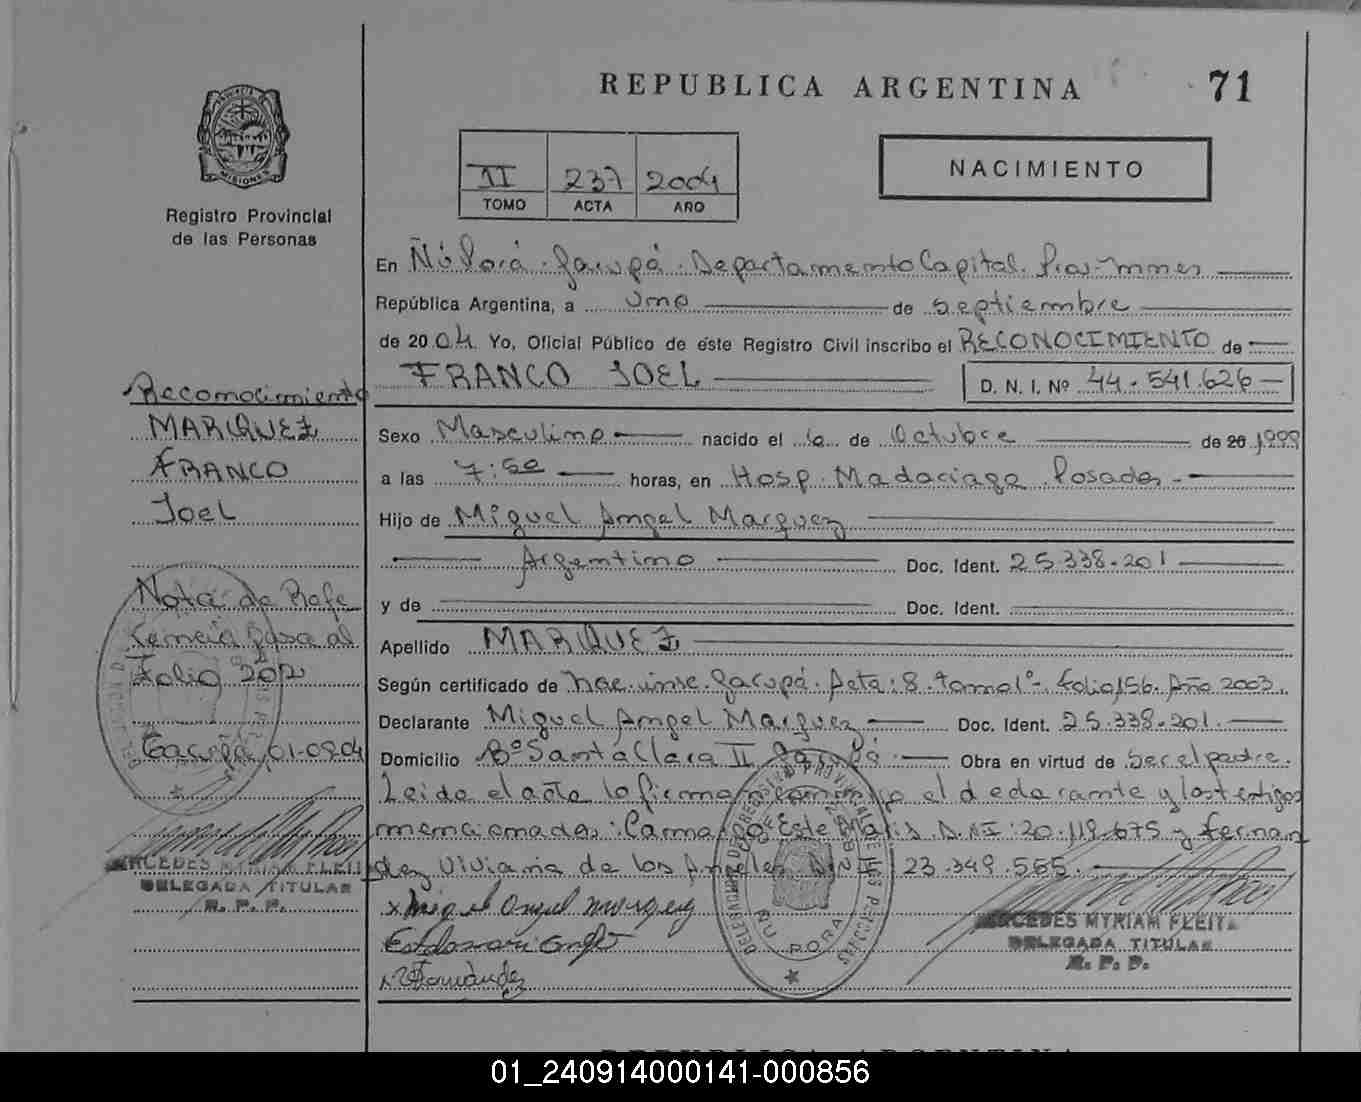 REPUBLICA ARGENTINA 71
PROVINCIA DE
MISIONES
Registro Provincial
de las Personas
II 237 2004
TOMO ACTA AÑO
NACIMIENTO
En Ñú Porá - Garupá - Departamento Capital. Pcia. Mnes
República Argentina, a uno de septiembre
de 2004. Yo, Oficial Público de este Registro Civil inscribo el RECONOCIMIENTO de
FRANCO JOEL D. N. I. Nº 44.541.626
Sexo Masculino nacido el 6 de Octubre de 20 1999
a las 7:50 horas, en Hosp. Madariaga Posadas
Hijo de Miguel Angel Marquez
Argentino Doc. Ident. 25.338.201
y de Doc. Ident.
Apellido MARQUEZ
Según certificado de nac. insc. Garupá. Acta: 8. tomo 1º - folio 156. Año 2003.
Declarante Miguel Angel Marquez Doc. Ident. 25.338.201.
Domicilio Bº Santa Clara II Garupá Obra en virtud de ser el padre.
Leida el acta la firman conmigo el declarante y los testigos
mencionados: Este D.N.I: 20.119.675 y Fernan
dez Viviana de los Angeles D.N.I 23.349.565.
x Miguel Angel Marquez
Fernández
MERCEDES MYRIAM FLEITA
DELEGADA TITULAR
R. P. P.
DELEGACION DEL REGISTRO PROVINCIAL DE LAS PERSONAS
ÑU PORA
Reconocimiento
MARQUEZ
FRANCO
Joel
Nota de Refe
rencia pasa al
Folio 202
Garupá, 01-09-04
MERCEDES MYRIAM FLEITA
DELEGADA TITULAR
R. P. P.
REPUBLICA ARGENTINA
01_240914000141-000856